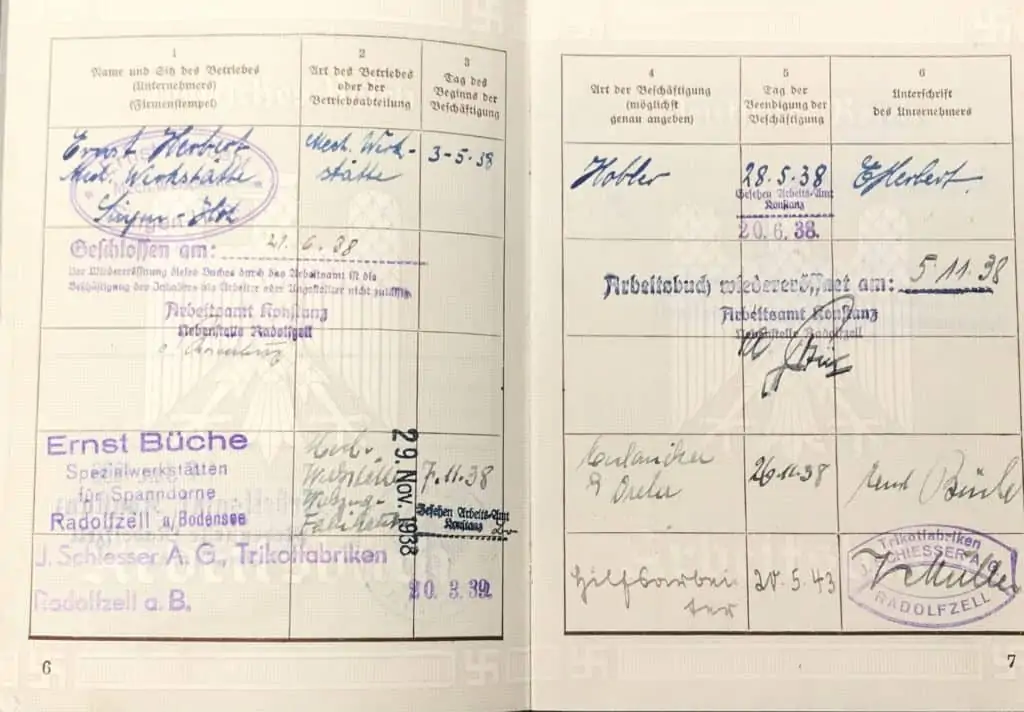 1
Name und Sitz des Betriebes
(Unternehmers)
(Firmenstempel)
2
Art des Betriebes
oder der
Betriebsabteilung
3
Tag des
Beginns der
Beschäftigung
Ernst Herbert
Mech. Werkstätte
Singen - Htw
Mech. Werk-
stätte
3-5.38
Geschlossen am: 21.6.38
Vor Wiedereröffnung dieses Buches durch das Arbeitsamt ist die
Beschäftigung des Inhabers als Arbeiter oder Angestellter nicht zulässig.
Arbeitsamt Konstanz
Nebenstelle Radolfzell
Ernst Büche
Spezialwerkstätten
für Spanndorne
Radolfzell a/Bodensee
Mech.
Werkstätte
Fabrikation
29. Nov. 1938
7.11.38
Gesehen Arbeits-Amt
Konstanz
J. Schiesser A. G., Trikotfabriken
Radolfzell a. B.
20.3.39.
6
4
Art der Beschäftigung
(möglichst
genau angeben)
5
Tag der
Beendigung der
Beschäftigung
6
Unterschrift
des Unternehmers
Hobler
28.5.38
Gesehen Arbeits-Amt
Konstanz
20.6.38.
E Herbert
Arbeitsbuch wiedereröffnet am: 5.11.38
Arbeitsamt Konstanz
Nebenstelle Radolfzell
Mechaniker
& Dreher
26.11.38
Ernst Büche
Hilfsarbei
ter
20.5.43
Trikotfabriken
J. SCHIESSER A/G.
RADOLFZELL
Müller
7